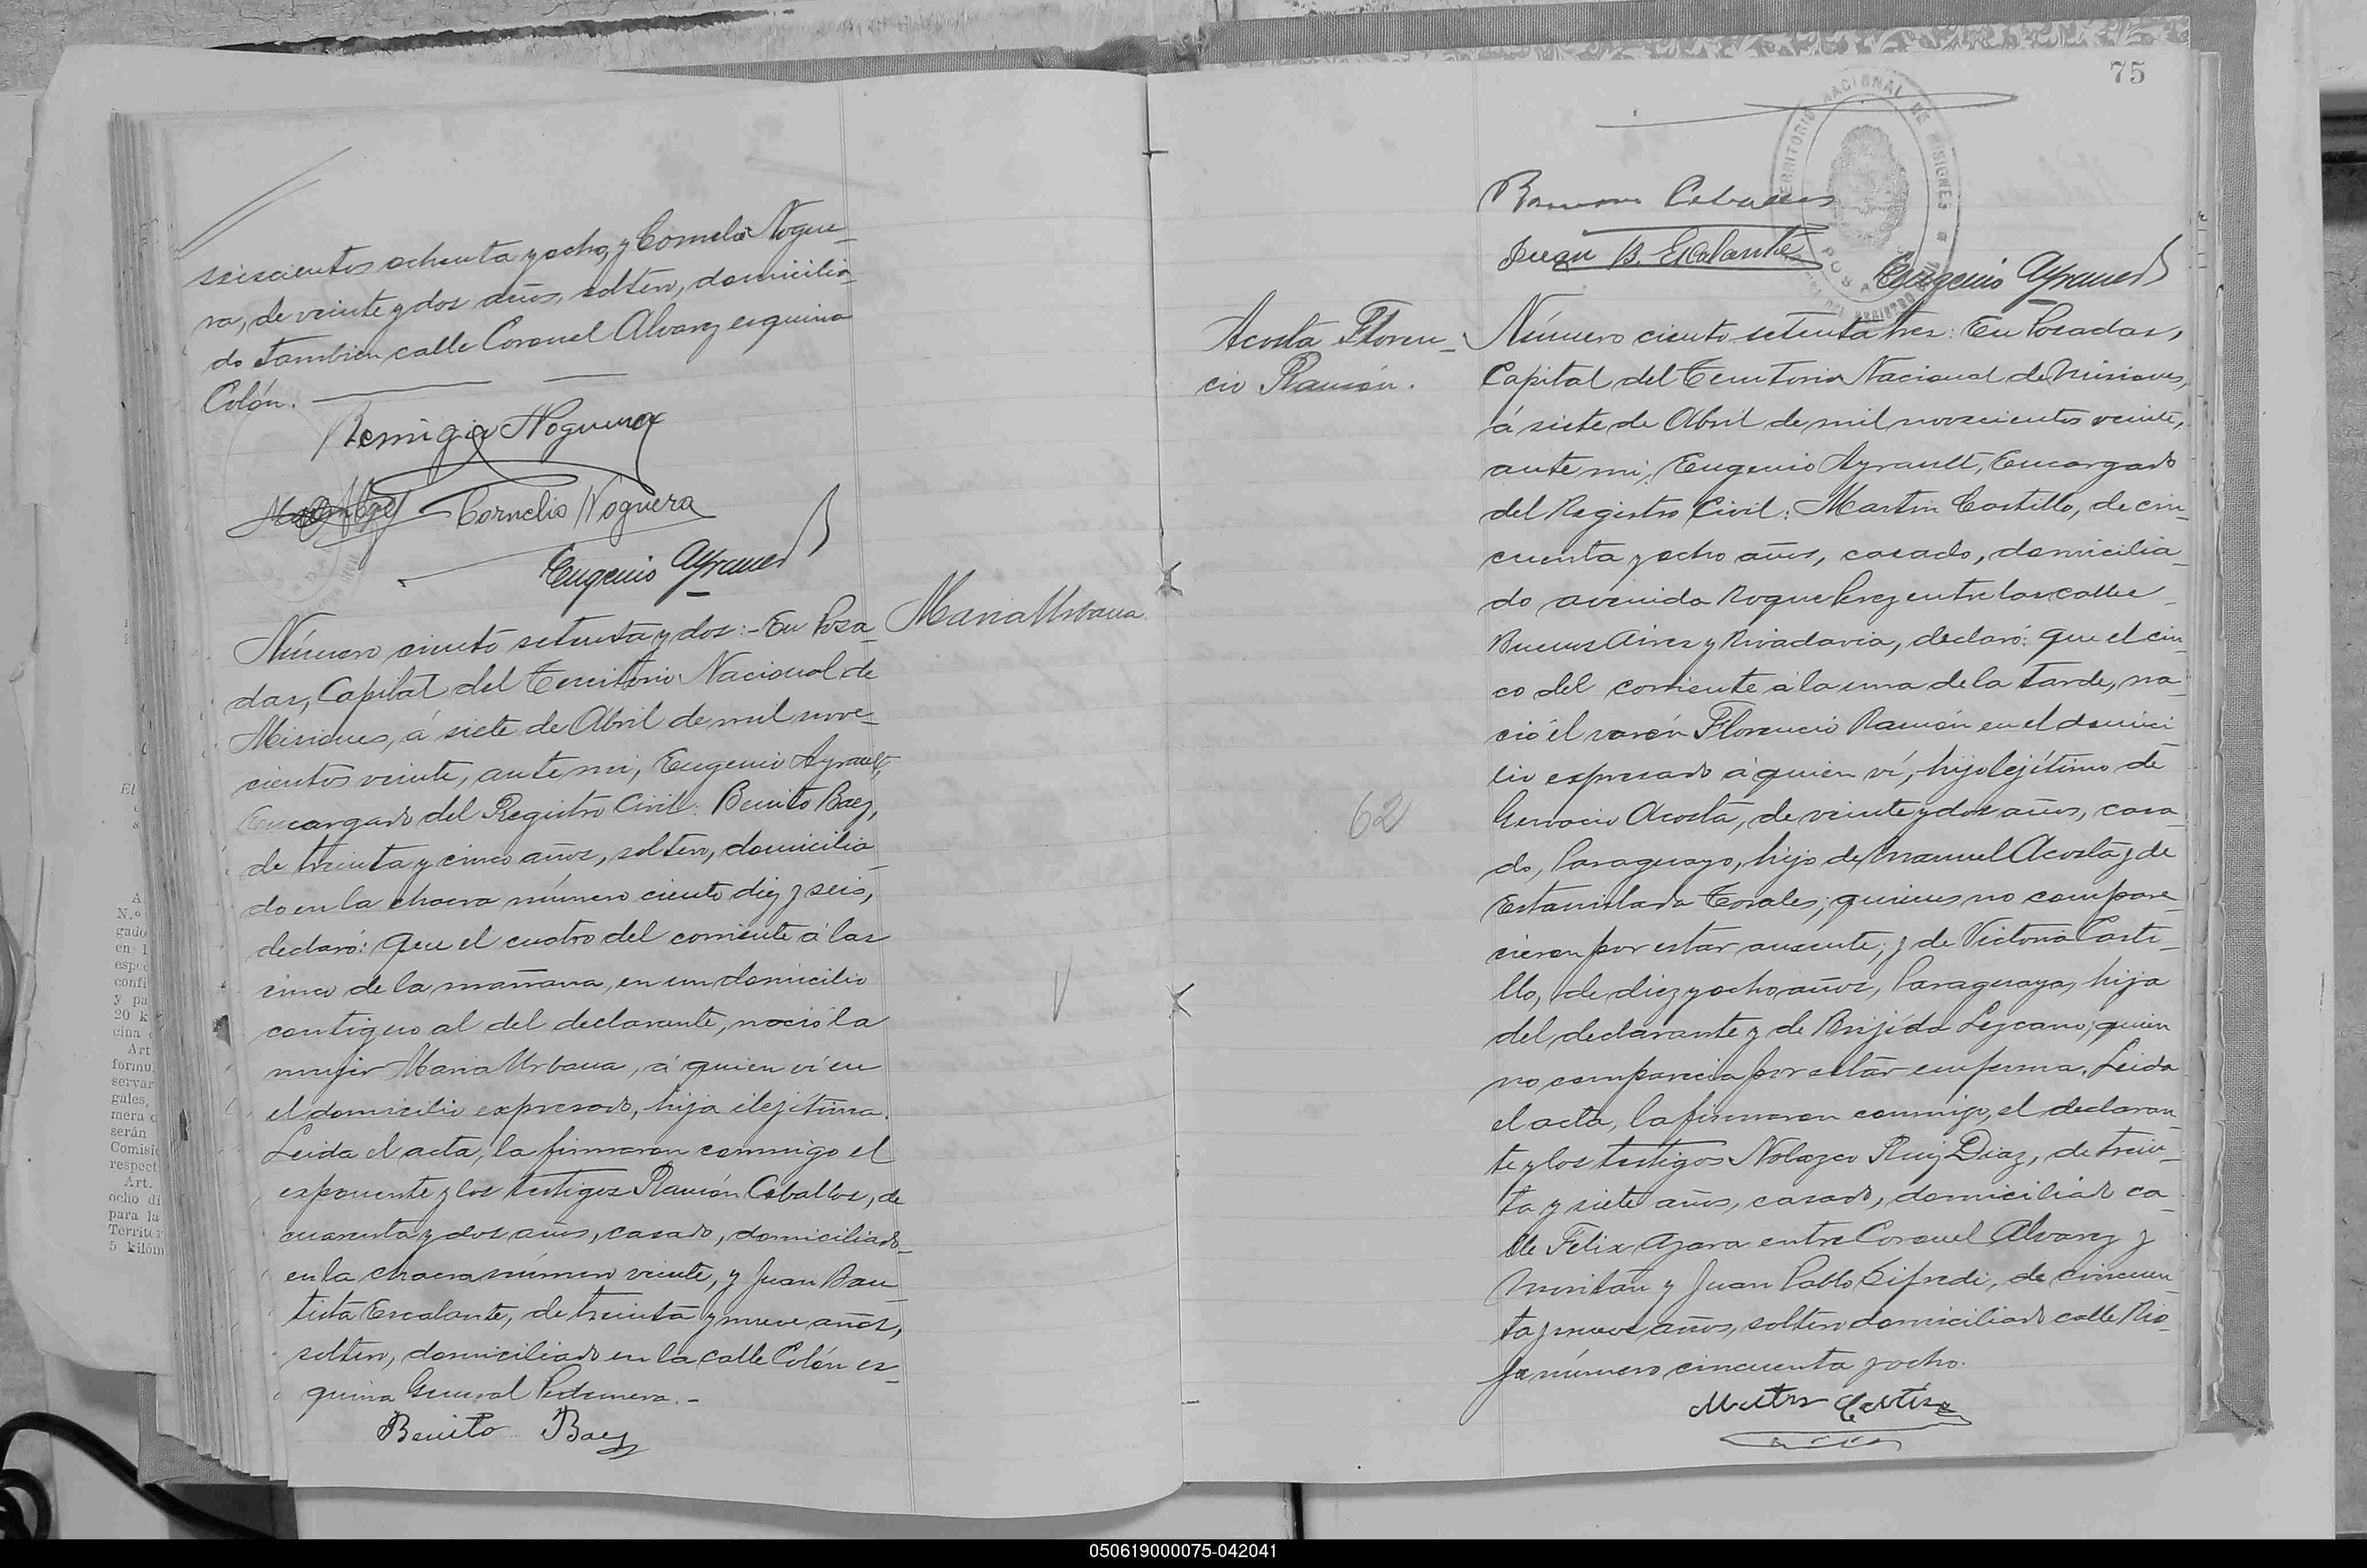 seiscientos ochenta y ocho, y Cornelio Nogue-
ra, de veinte y dos años, soltero, domicilia-
do tambien calle Coronel Alvarez esquina
Colón.
Remigio Noguera
Cornelio Noguera
Eugenio Ayrault
Número ciento setenta y dos:- En Posa-
das, Capital del Territorio Nacional de
Misiones, á siete de Abril de mil nove-
cientos veinte, ante mi, Eugenio Ayrault,
Encargado del Registro Civil: Benito Baez,
de treinta y cinco años, soltero, domicilia-
do en la chacra número ciento diez y seis,
declaró: Que el cuatro del corriente á las
cinco de la mañana, en un domicilio
contiguo al del declarante, nació la
mujer Maria Urbana, á quien ví en
el domicilio expresado, hija ilejítima.
Leida el acta, la firmaron conmigo el
exponente y los testigos Ramón Ceballos, de
cuarenta y dos años, casado, domiciliado
en la chacra número veinte, y Juan Bau-
tista Escalante, de treinta y nueve años,
soltero, domiciliado en la calle Colón es-
quina General Pedernera.-
Benito Baez
Maria Urbana
75
TERRITORIO NACIONAL DE MISIONES
Ramon Ceballos
Juan B. Escalante
Eugenio Ayrault
Acosta Floren-
cio Ramón.
62
Número ciento setenta tres: En Posadas,
Capital del Territorio Nacional de Misiones,
á siete de Abril de mil novecientos veinte,
ante mi, Eugenio Ayrault, Encargado
del Registro Civil: Martin Castillo, de cin-
cuenta y ocho años, casado, domicilia-
do avenida Roque Perez entre las calles
Buenos Aires y Rivadavia, declaró: Que el cin-
co del corriente á la una de la tarde, na-
ció él varón Florencio Ramón en el domici-
lio expresado á quien ví, hijo lejítimo de
Gervacio Acosta, de veinte y dos años, casa-
do, Paraguayo, hijo de Manuel Acosta y de
Estanislada Torales; quienes no compare-
cieron por estar ausente; y de Victoria Casti-
llo, de diez y ocho años, Paraguaya, hija
del declarante y de Brijida Lezcano; quien
no comparecia por estar enferma. Leida
el acta, la firmaron conmigo, el declaran-
te y los testigos Nolazco Ruiz Diaz, de trein-
ta y siete años, casado, domiciliado ca-
lle Felix Azara entre Coronel Alvarez y
y Juan Pablo Sifredi, de cincuen-
ta y nueve años, soltero domiciliado calle Rio-
ja número cincuenta y ocho.
El
A
N.º
gado
en 1
espec
confi
y pa
20 k
cina
Art
formu
servar
gales,
mera c
serán
Comisi
respect
Art.
ocho di
para la
Territor
5 kilóm
050619000075-042041